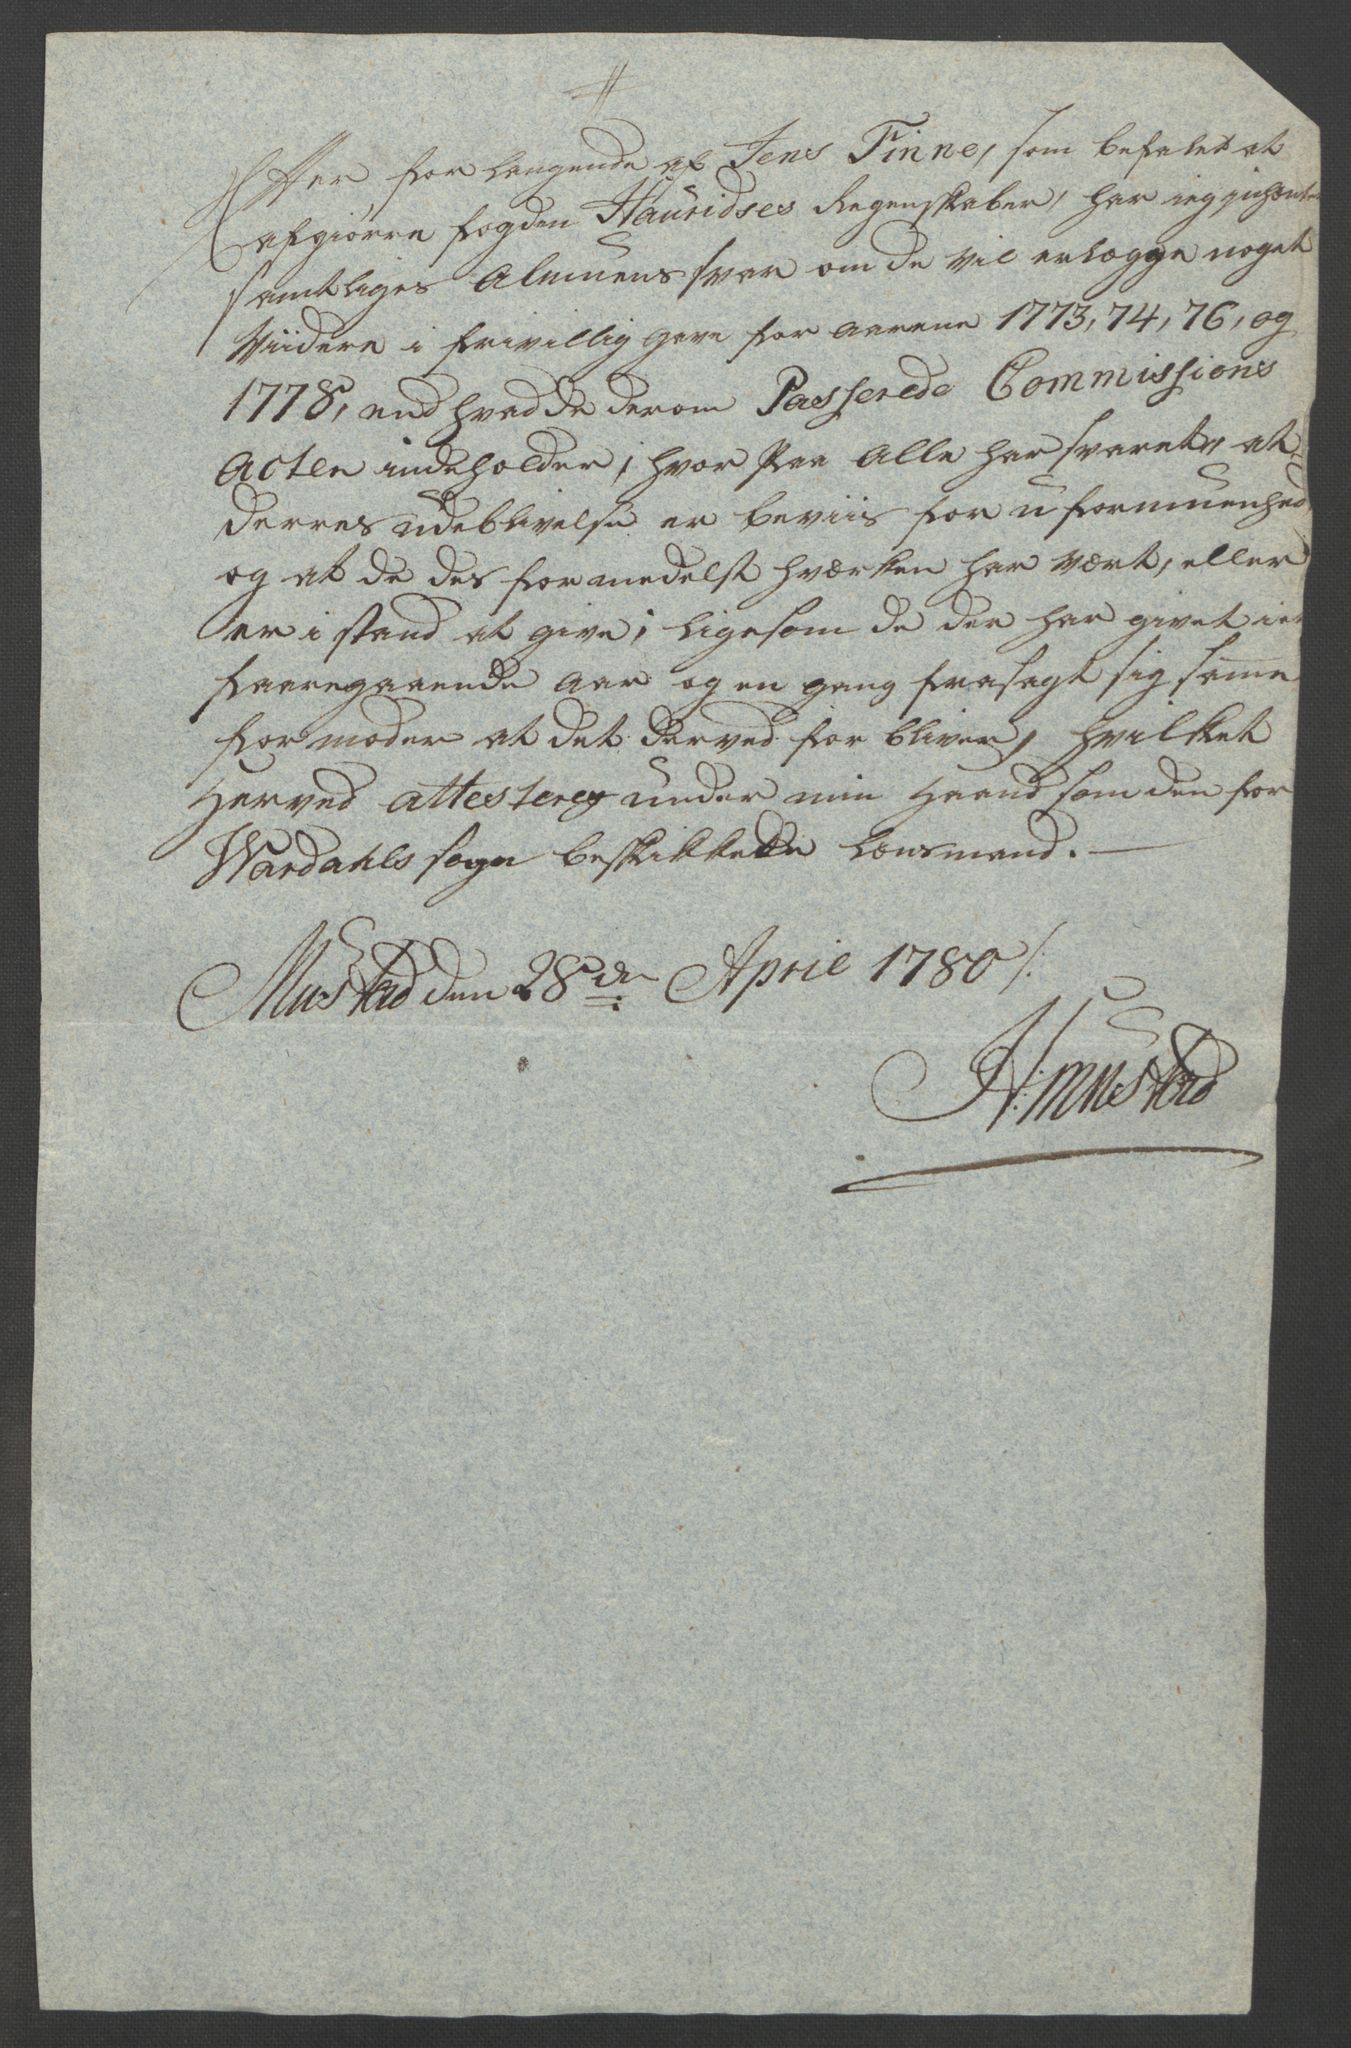 Efter forlangende af Jens Finne, som befalet at
afgiørre fogden Hauridses Regenskaber, har ieg indhentet
samtliges Almuens svar om de vil erlægge noget
Viidere i frivillig gave for aarene 1773, 74, 76, og
1778, end hvad de derom Passerede Commissions
Acten indeholder, hvor Paa Alle har svaret, at
derres udeblivelse er beviis for uformuenhed,
og at de des formedelst hværken har vært, eller
er i stand at give, ligesom de der har givet i et
foaregaaende aar og en gang frasagt sig samme
formoder at det derved forbliver, hvilket
Herved attesterer under min Haand som den for
Wardahls sogn beskikkede Lænsmand. —
Mustad den 28de April 1780 /:
H: Mustad